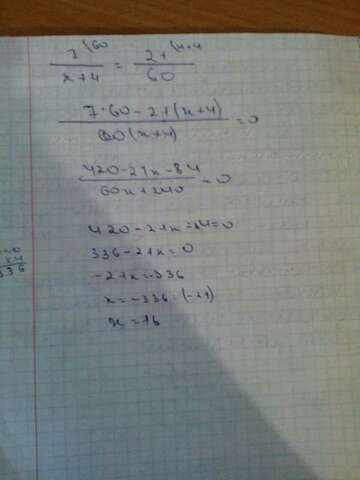 7 (60 / x+4 = 21 (x+4 / 60
7·60-21(x+4) / 60(x+4) =0
420-21x-84 / 60x+240 =0
420-21x-84=0
336-21x=0
-21x=-336
x=-336:(-21)
x=16
336